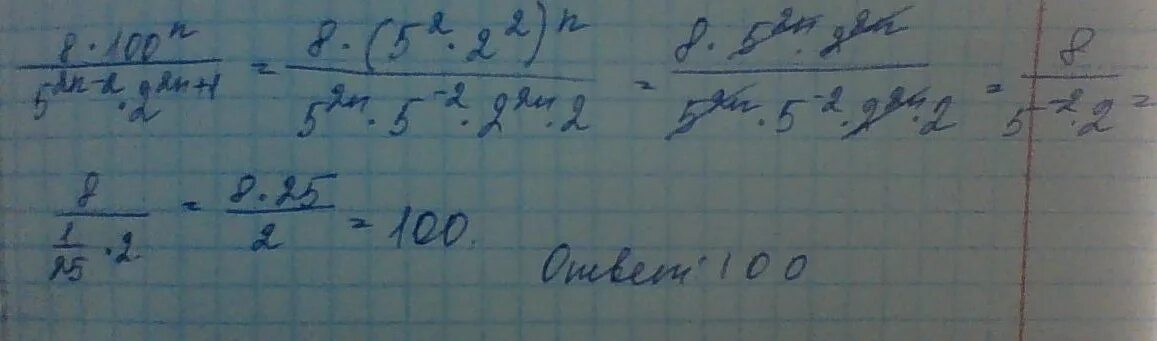 8·100ⁿ / 5²ⁿ⁻²·2²ⁿ⁺¹ = 8·(5²·2²)ⁿ / 5²ⁿ·5⁻²·2²ⁿ·2 = 8·5²ⁿ·2²ⁿ / 5²ⁿ·5⁻²·2²ⁿ·2 = 8 / 5⁻²·2 =
8 / (1/25 ·2) = 8·25 / 2 = 100.
Ответ: 100